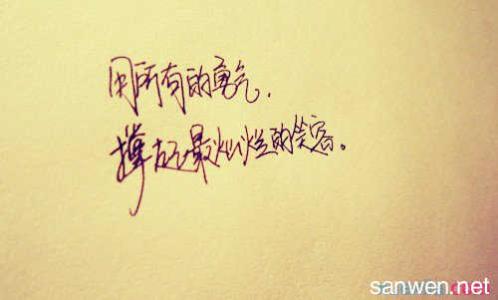 用所有的勇气，
撑起最灿烂的笑容。
sanwen.net